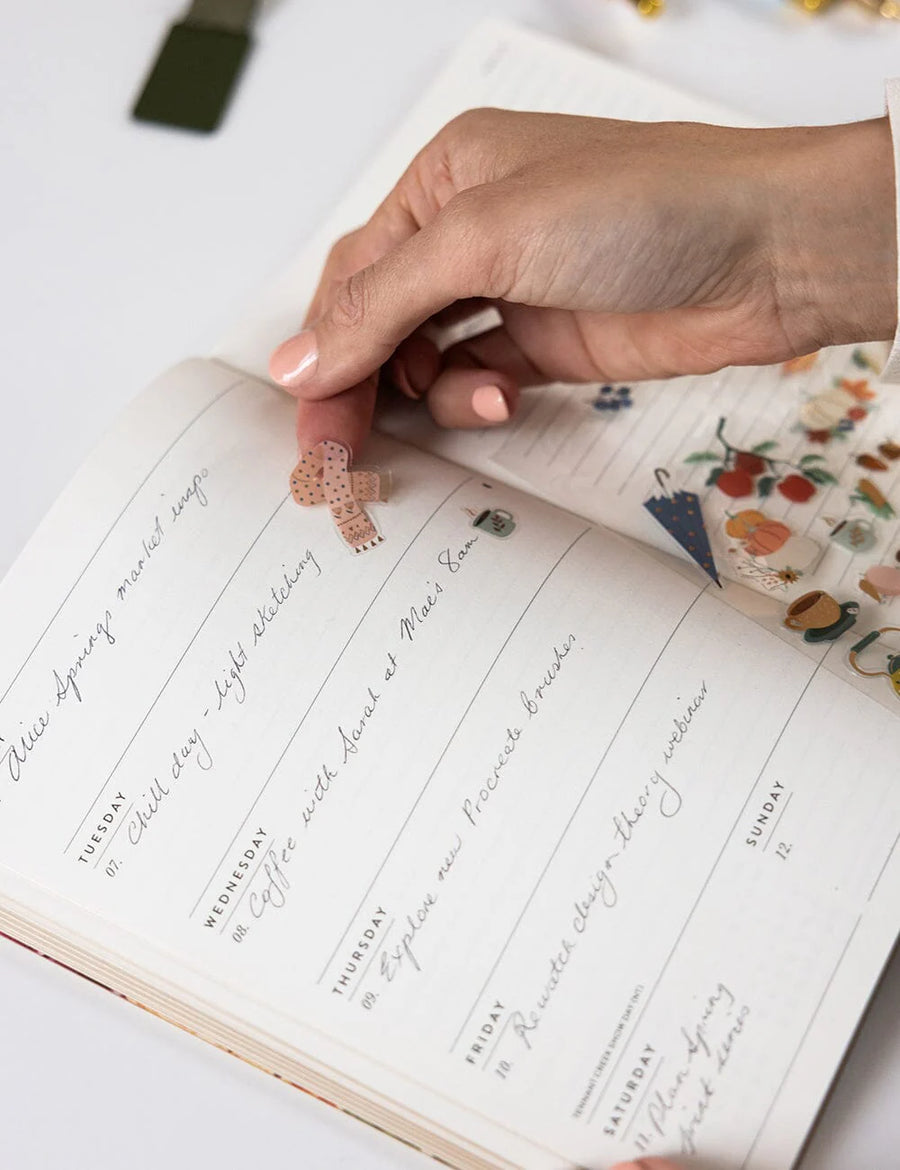 Alice Springs market wrap.
TUESDAY
07.
Chill day - light sketching
WEDNESDAY
08.
Coffee with Sarah at Mae's 8am
THURSDAY
09.
Explore new Procreate brushes.
FRIDAY
10.
Rewatch design theory webinar
TENNANT CREEK SHOW DAY (NT)
SATURDAY
11.
Plan Spring
print series
SUNDAY
12.